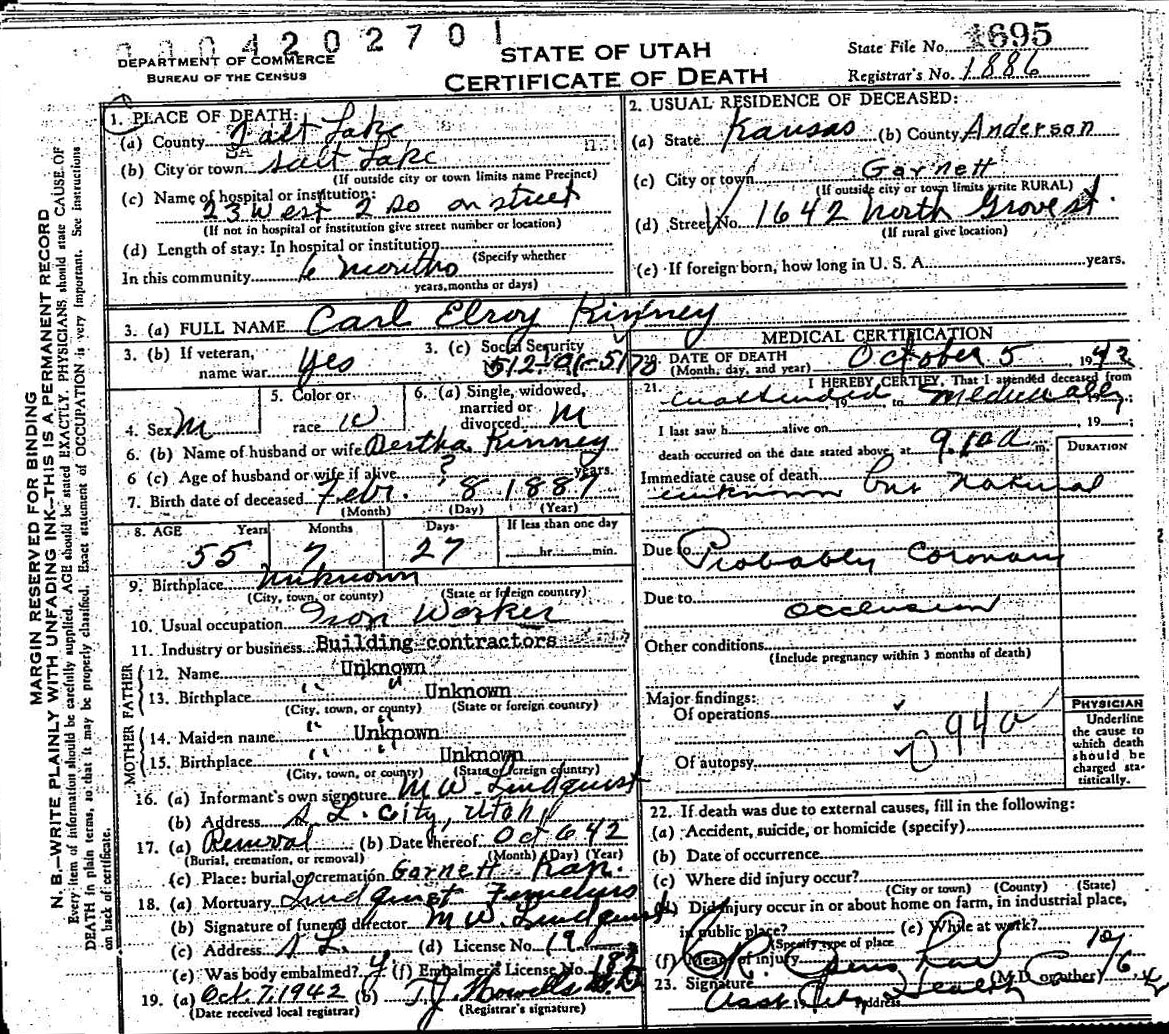 0004202701
DEPARTMENT OF COMMERCE
BUREAU OF THE CENSUS
STATE OF UTAH
CERTIFICATE OF DEATH
State File No. 1695
Registrar's No. 1886
MARGIN RESERVED FOR BINDING
N. B.—WRITE PLAINLY WITH UNFADING INK—THIS IS A PERMANENT RECORD
Every item of information should be carefully supplied. AGE should be stated EXACTLY. PHYSICIANS should state CAUSE OF
DEATH in plain terms, so that it may be properly classified. Exact statement of OCCUPATION is very important. See instructions
on back of certificate.
1. PLACE OF DEATH:
(a) County Salt Lake
(b) City or town Salt Lake
(If outside city or town limits name Precinct)
(c) Name of hospital or institution:
23 West 2 So on street
(If not in hospital or institution give street number or location)
(d) Length of stay: In hospital or institution
(Specify whether
In this community 6 months
years, months or days)
2. USUAL RESIDENCE OF DECEASED:
(a) State Kansas (b) County Anderson
(c) City or town Garnett
(If outside city or town limits write RURAL)
(d) Street No. 1642 North Grove st.
(If rural give location)
(e) If foreign born, how long in U. S. A. years.
3. (a) FULL NAME Carl Elroy Kinney
3. (b) If veteran, name war yes
3. (c) Social Security
512-01-5173
4. Sex M
5. Color or race W
6. (a) Single, widowed, married or divorced M
6. (b) Name of husband or wife Bertha Kinney
6 (c) Age of husband or wife if alive ? years.
7. Birth date of deceased Febr. 8 1887
(Month) (Day) (Year)
8. AGE Years Months Days If less than one day
55 7 27 hr. min.
9. Birthplace Unknown
(City, town, or county) (State or foreign country)
10. Usual occupation Iron Worker
11. Industry or business Building contractors
FATHER
12. Name Unknown
13. Birthplace " " Unknown
(City, town, or county) (State or foreign country)
MOTHER
14. Maiden name " " Unknown
15. Birthplace " " Unknown
(City, town, or county) (State or foreign country)
16. (a) Informant's own signature M W. Lindquist
(b) Address S. L. City, Utah
17. (a) Removal (b) Date thereof Oct 6 42
(Burial, cremation, or removal) (Month) (Day) (Year)
(c) Place: burial or cremation Garnett Kan.
18. (a) Mortuary Lindquist
(b) Signature of funeral director M W. Lindquist
(c) Address S L. (d) License No. 19
(e) Was body embalmed? y (f) Embalmer's License No. 182
19. (a) Oct. 7, 1942 (b) T. J. Howells
(Date received local registrar) (Registrar's signature)
MEDICAL CERTIFICATION
20. DATE OF DEATH October 5 1942
(Month, day, and year)
21. I HEREBY CERTIFY, That I attended deceased from
unattended 19 to Medically, 19
I last saw h alive on , 19 ;
death occurred on the date stated above, at 9.10 a m.
DURATION
Immediate cause of death
unknown but Natural
Due to Probably Coronary
Due to occlusion
Other conditions
(Include pregnancy within 3 months of death)
Major findings:
Of operations
94a
Of autopsy
PHYSICIAN
Underline
the cause to
which death
should be
charged sta-
tistically.
22. If death was due to external causes, fill in the following:
(a) Accident, suicide, or homicide (specify)
(b) Date of occurrence
(c) Where did injury occur?
(City or town) (County) (State)
(d) Did injury occur in or about home on farm, in industrial place,
in public place? (e) While at work?
(Specify type of place
(f) Means of injury
10/6
23. Signature (M.D. or other)
Asst City Health
Address